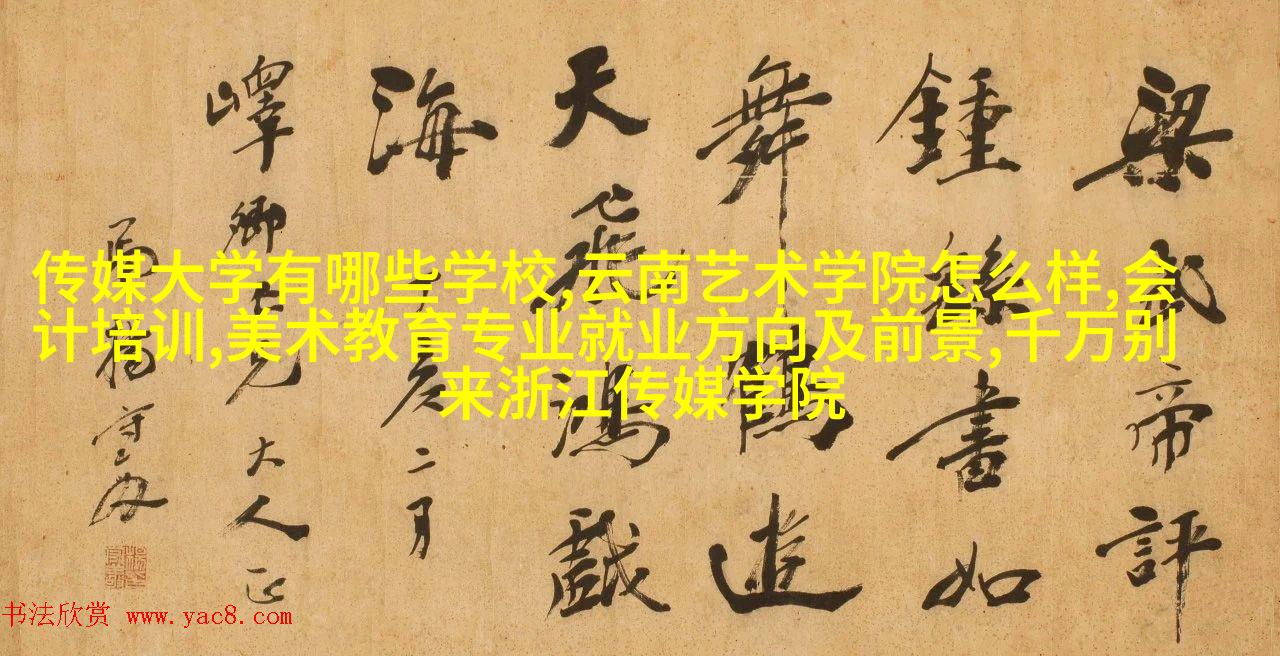 梁武帝評
鍾繇書如
舞鶴遊
天飛鴻戲
海
丁亥二月
嶧卿兄大人正
楊守敬
传媒大学有哪些学校,云南艺术学院怎么样,会
计培训,美术教育专业就业方向及前景,千万别
来浙江传媒学院
书法欣赏 www.yac8.com